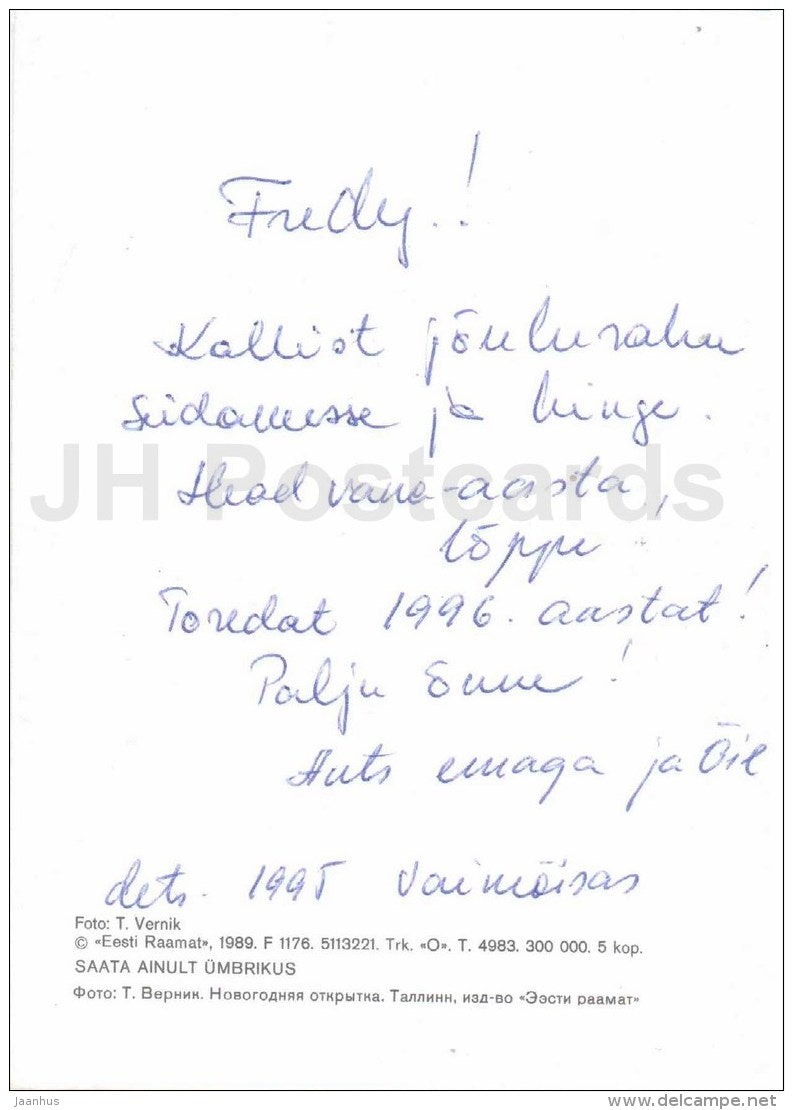 Fredy.!
Kallist jõulurahu
südamesse ja hinge.
Head vana-aasta
lõppu!
Toredat 1996. aastat!
Palju õnne!
Ants emaga ja Õie
dets. 1995 Vaimõisas
JH Postcards
Foto: T. Vernik
© «Eesti Raamat», 1989. F 1176. 5113221. Trk. «O». T. 4983. 300 000. 5 kop.
SAATA AINULT ÜMBRIKUS
Фото: Т. Верник. Новогодняя открытка. Таллинн, изд-во «Ээсти раамат»
Jaanhus
delcampe.net